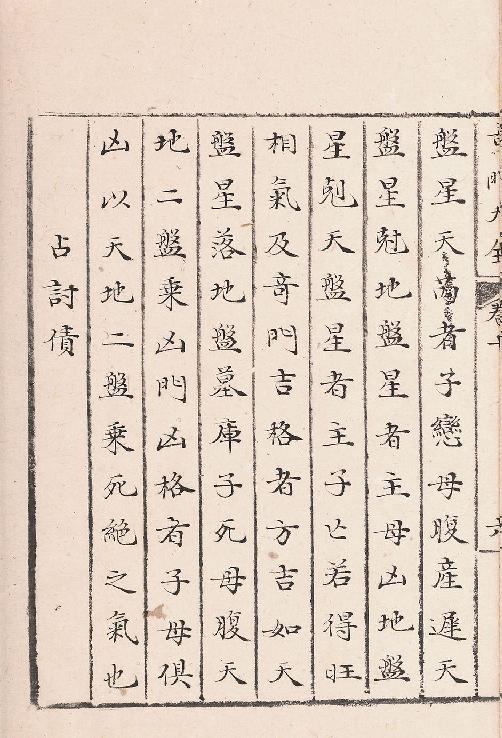 盤星天
者子戀母腹産遲天
盤星尅地盤星者主母凶地盤
星尅天盤星者主子亡若得旺
相氣及竒門吉格者方吉如天
盤星落地盤墓庫子死母腹天
地二盤乗凶門凶格者子母俱
凶以天地二盤乗死絶之氣也
占討債